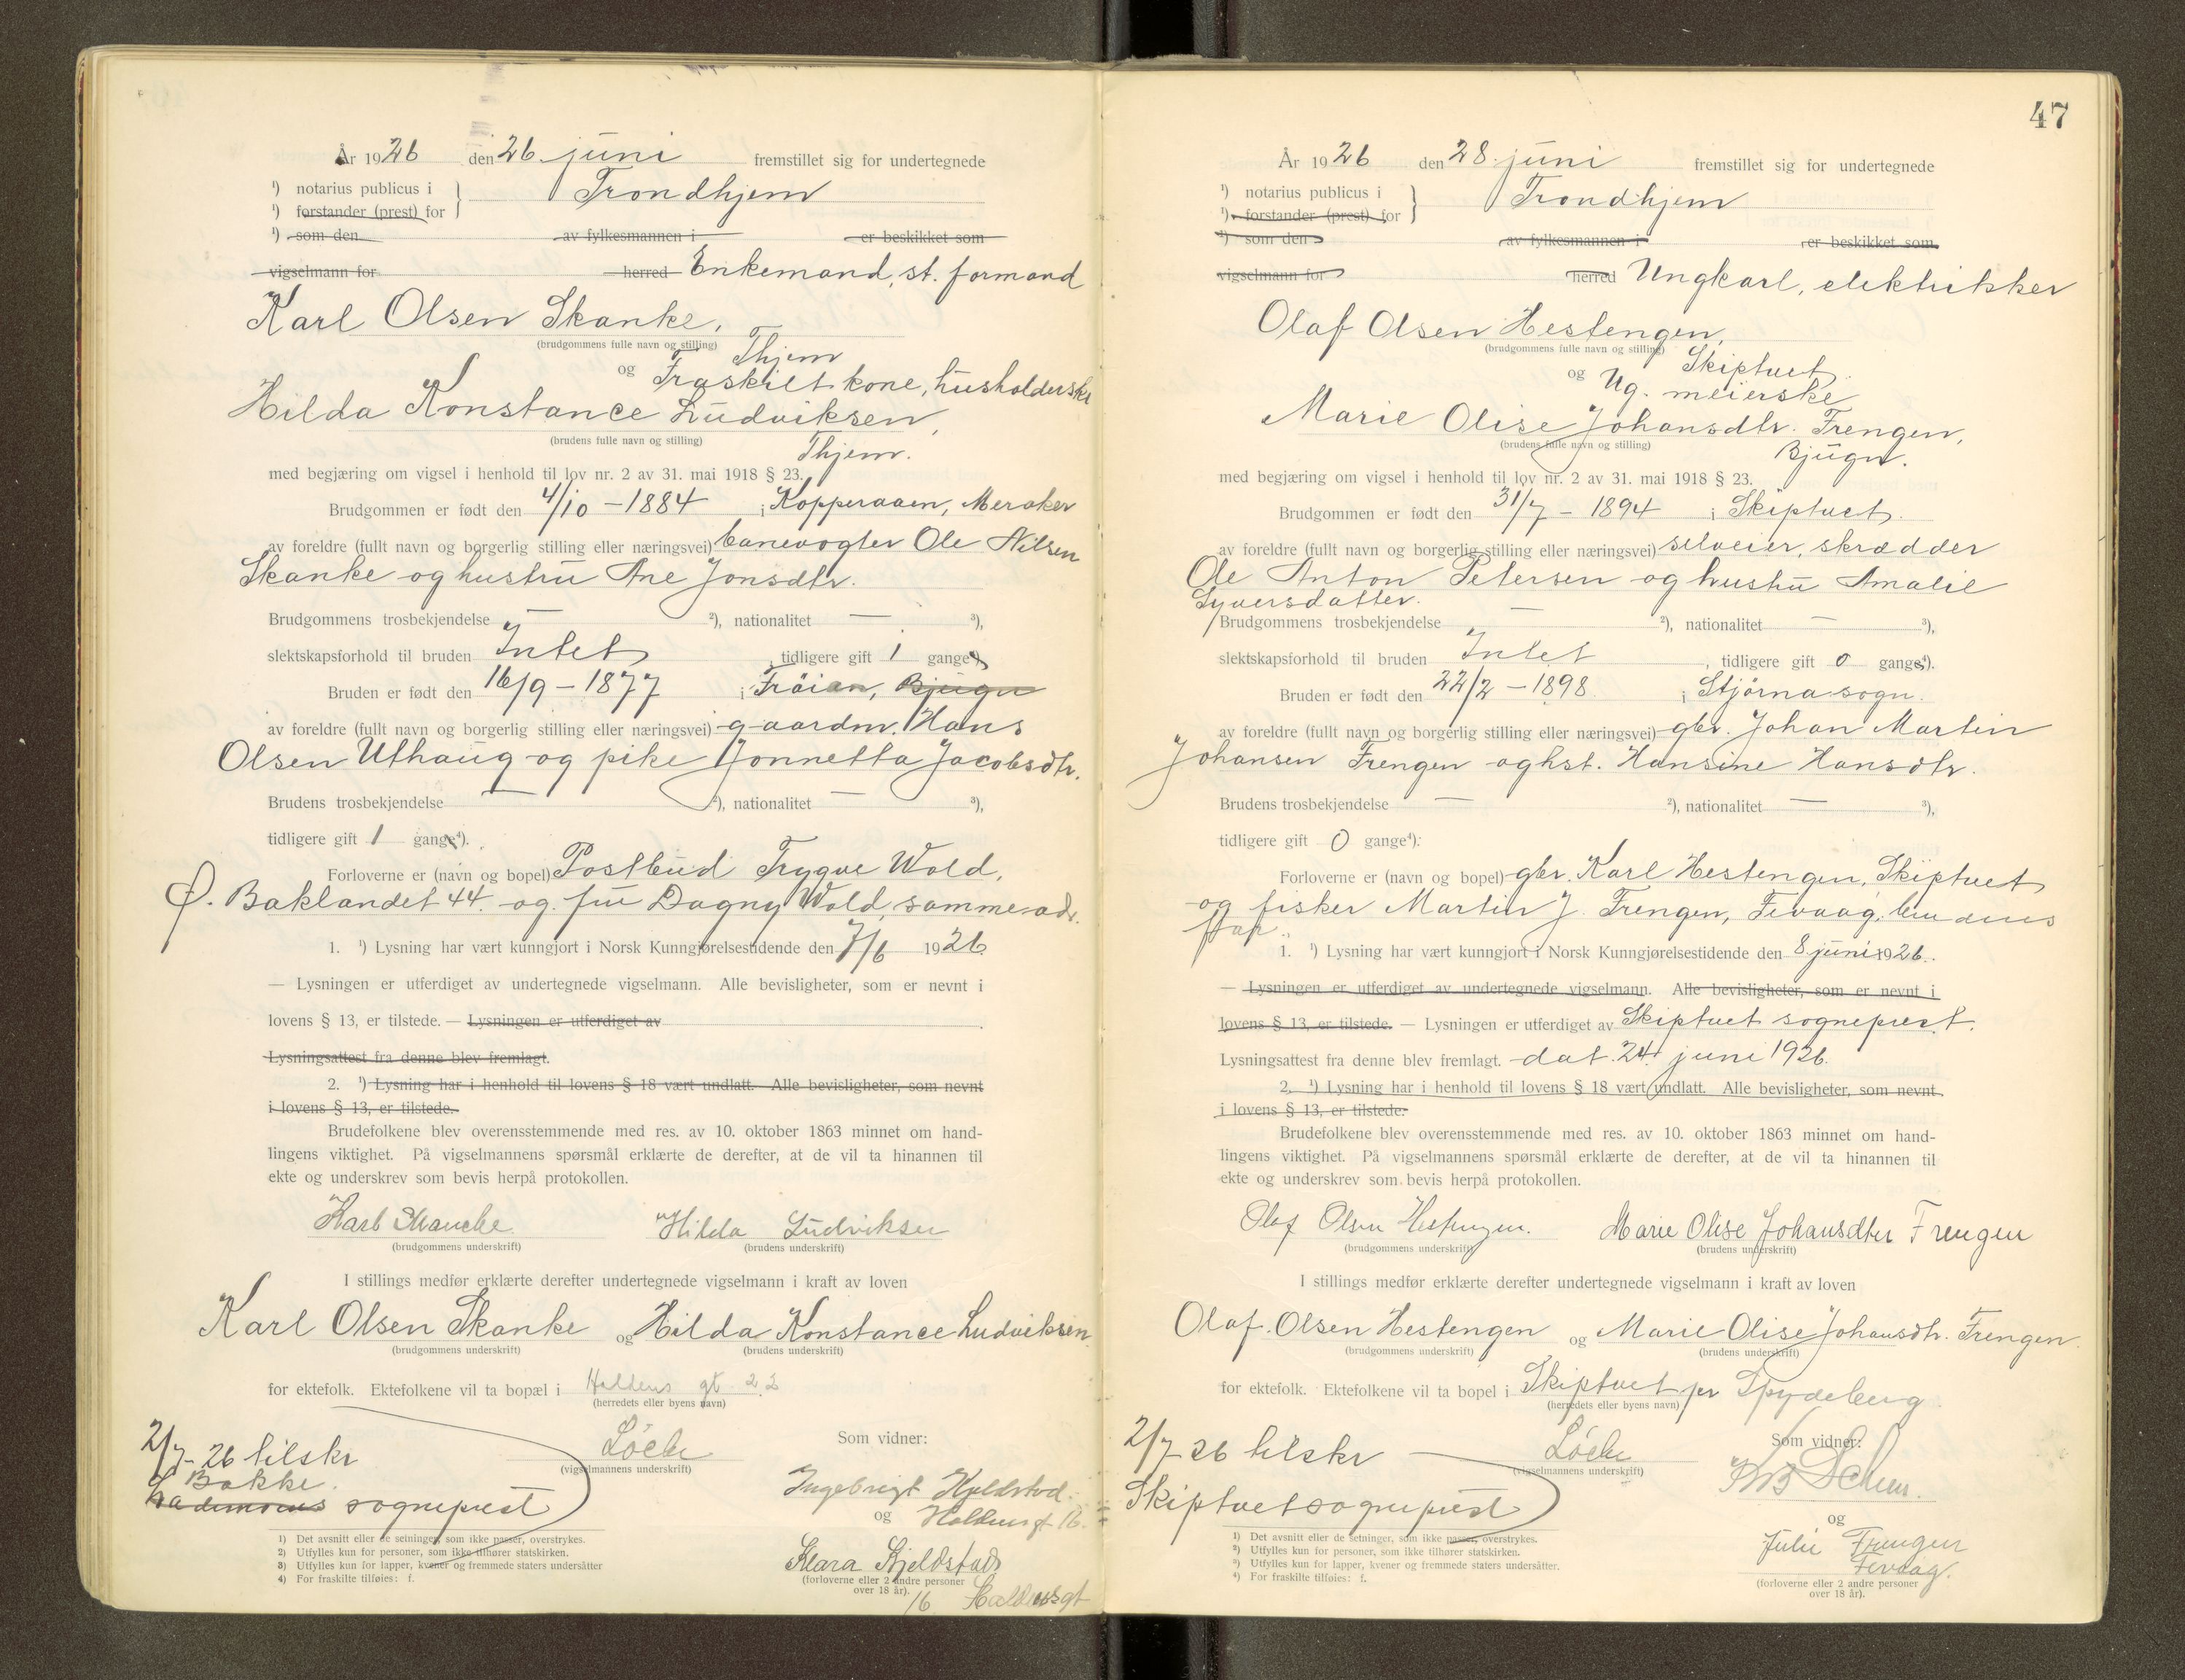 År 1926 den 26. juni fremstillet sig for undertegnede
¹) notarius publicus i
¹) forstander (prest) for } Trondhjem
¹) som den av fylkesmannen i er beskikket som
vigselmann for herred Enkemand, st. formand
Karl Olsen Skanke,
(brudgommens fulle navn og stilling) Thjem
og Fraskilt kone, husholderske
Hilda Konstance Ludviksen,
(brudens fulle navn og stilling) Thjem.
med begjæring om vigsel i henhold til lov nr. 2 av 31. mai 1918 § 23.
Brudgommen er født den 4/10 - 1884 i Kopperaaen, Meraker
av foreldre (fullt navn og borgerlig stilling eller næringsvei) banevogter Ole Nilsen
Skanke og hustru Ane Jonsdtr.
Brudgommens trosbekjendelse — ²), nationalitet — ³),
slektskapsforhold til bruden Intet tidligere gift 1 gange⁴)
Bruden er født den 16/9 - 1877 i Fröian, Bjugn
av foreldre (fullt navn og borgerlig stilling eller næringsvei) gaardm. Hans
Olsen Uthaug og pike Jonnetta Jacobsdtr.
Brudens trosbekjendelse — ²), nationalitet — ³),
tidligere gift 1 gange⁴).
Forloverne er (navn og bopel) Postbud Trygve Wold,
Ø. Baklandet 44. og fru Dagny Wold, samme adr.
1. ¹) Lysning har vært kunngjort i Norsk Kunngjørelsestidende den 7/6 1926
— Lysningen er utferdiget av undertegnede vigselmann. Alle bevisligheter, som er nevnt i
lovens § 13, er tilstede. — Lysningen er utferdiget av
Lysningsattest fra denne blev fremlagt.
2. ¹) Lysning har i henhold til lovens § 18 vært undlatt. Alle bevisligheter, som nevnt
i lovens § 13, er tilstede.
Brudefolkene blev overensstemmende med res. av 10. oktober 1863 minnet om hand-
lingens viktighet. På vigselmannens spørsmål erklærte de derefter, at de vil ta hinannen til
ekte og underskrev som bevis herpå protokollen.
Karl Skancke Hilda Ludviksen
(brudgommens underskrift) (brudens underskrift)
I stillings medfør erklærte derefter undertegnede vigselmann i kraft av loven
Karl Olsen Skanke og Hilda Konstance Ludviksen
(brudgommens underskrift) (brudens underskrift)
for ektefolk. Ektefolkene vil ta bopæl i Haldens gt 22
(herredets eller byens navn)
2/7 - 26 tilskr
Bakke
sogneprest
Löche
(vigselmannens underskrift)
Som vidner:
Ingebrigt Kjeldstad
og Haldens gt 16.
Klara Kjeldstad
(forloverne eller 2 andre personer
over 18 år).
16 Haldensgt
1) Det avsnitt eller de setninger, som ikke passer, overstrykes.
2) Utfylles kun for personer, som ikke tilhører statskirken.
3) Utfylles kun for lapper, kvener og fremmede staters undersåtter
4) For fraskilte tilføies: f.
47
År 1926 den 28. juni fremstillet sig for undertegnede
¹) notarius publicus i
¹) forstander (prest) for } Trondhjem
¹) som den av fylkesmannen i er beskikket som
vigselmann for herred Ungkarl, elektrisker
Olaf Olsen Hestengen,
(brudgommens fulle navn og stilling) Skiptvet
og Ug. meierske
Marie Olise Johansdtr. Frengen,
(brudens fulle navn og stilling) Bjugn.
med begjæring om vigsel i henhold til lov nr. 2 av 31. mai 1918 § 23.
Brudgommen er født den 31/7 - 1894 i Skiptvet
av foreldre (fullt navn og borgerlig stilling eller næringsvei) selveier, skrædder
Ole Anton Petersen og hustru Amalie
Syversdatter.
Brudgommens trosbekjendelse — ²), nationalitet — ³),
slektskapsforhold til bruden Intet, tidligere gift 0 gange⁴).
Bruden er født den 22/2 - 1898 i Stjörna sogn.
av foreldre (fullt navn og borgerlig stilling eller næringsvei) gbr. Johan Martin
Johansen Frengen og hst. Hansine Hansdtr.
Brudens trosbekjendelse — ²), nationalitet — ³),
tidligere gift 0 gange⁴):
Forloverne er (navn og bopel) gbr. Karl Hestengen, Skiptvet
og fisker Martin J. Frengen, Fevaag, brudens
far.
1. ¹) Lysning har vært kunngjort i Norsk Kunngjørelsestidende den 8 juni 1926.
— Lysningen er utferdiget av undertegnede vigselmann. Alle bevisligheter, som er nevnt i
lovens § 13, er tilstede. — Lysningen er utferdiget av Skiptvet sogneprest.
Lysningsattest fra denne blev fremlagt. dat. 24. juni 1926.
2. ¹) Lysning har i henhold til lovens § 18 vært undlatt. Alle bevisligheter, som nevnt
i lovens § 13, er tilstede.
Brudefolkene blev overensstemmende med res. av 10. oktober 1863 minnet om hand-
lingens viktighet. På vigselmannens spørsmål erklærte de derefter, at de vil ta hinannen til
ekte og underskrev som bevis herpå protokollen.
Olaf Olsen Hestengen. Marie Olise Johansdtter Frengen
(brudgommens underskrift) (brudens underskrift)
I stillings medfør erklærte derefter undertegnede vigselmann i kraft av loven
Olaf Olsen Hestengen og Marie Olise Johansdtr. Frengen
(brudgommens underskrift) (brudens underskrift)
for ektefolk. Ektefolkene vil ta bopel i Skiptvet pr Spydeberg
(herredets eller byens navn)
2/7 26 tilskr
Skiptvet sogneprest
Löche
(vigselmannens underskrift)
Som vidner:
og
Julie Frengen
Fevaag.
(forloverne eller 2 andre personer
over 18 år).
1) Det avsnitt eller de setninger, som ikke passer, overstrykes.
2) Utfylles kun for personer, som ikke tilhører statskirken.
3) Utfylles kun for lapper, kvener og fremmede staters undersåtter.
4) For fraskilte tilføies: f.